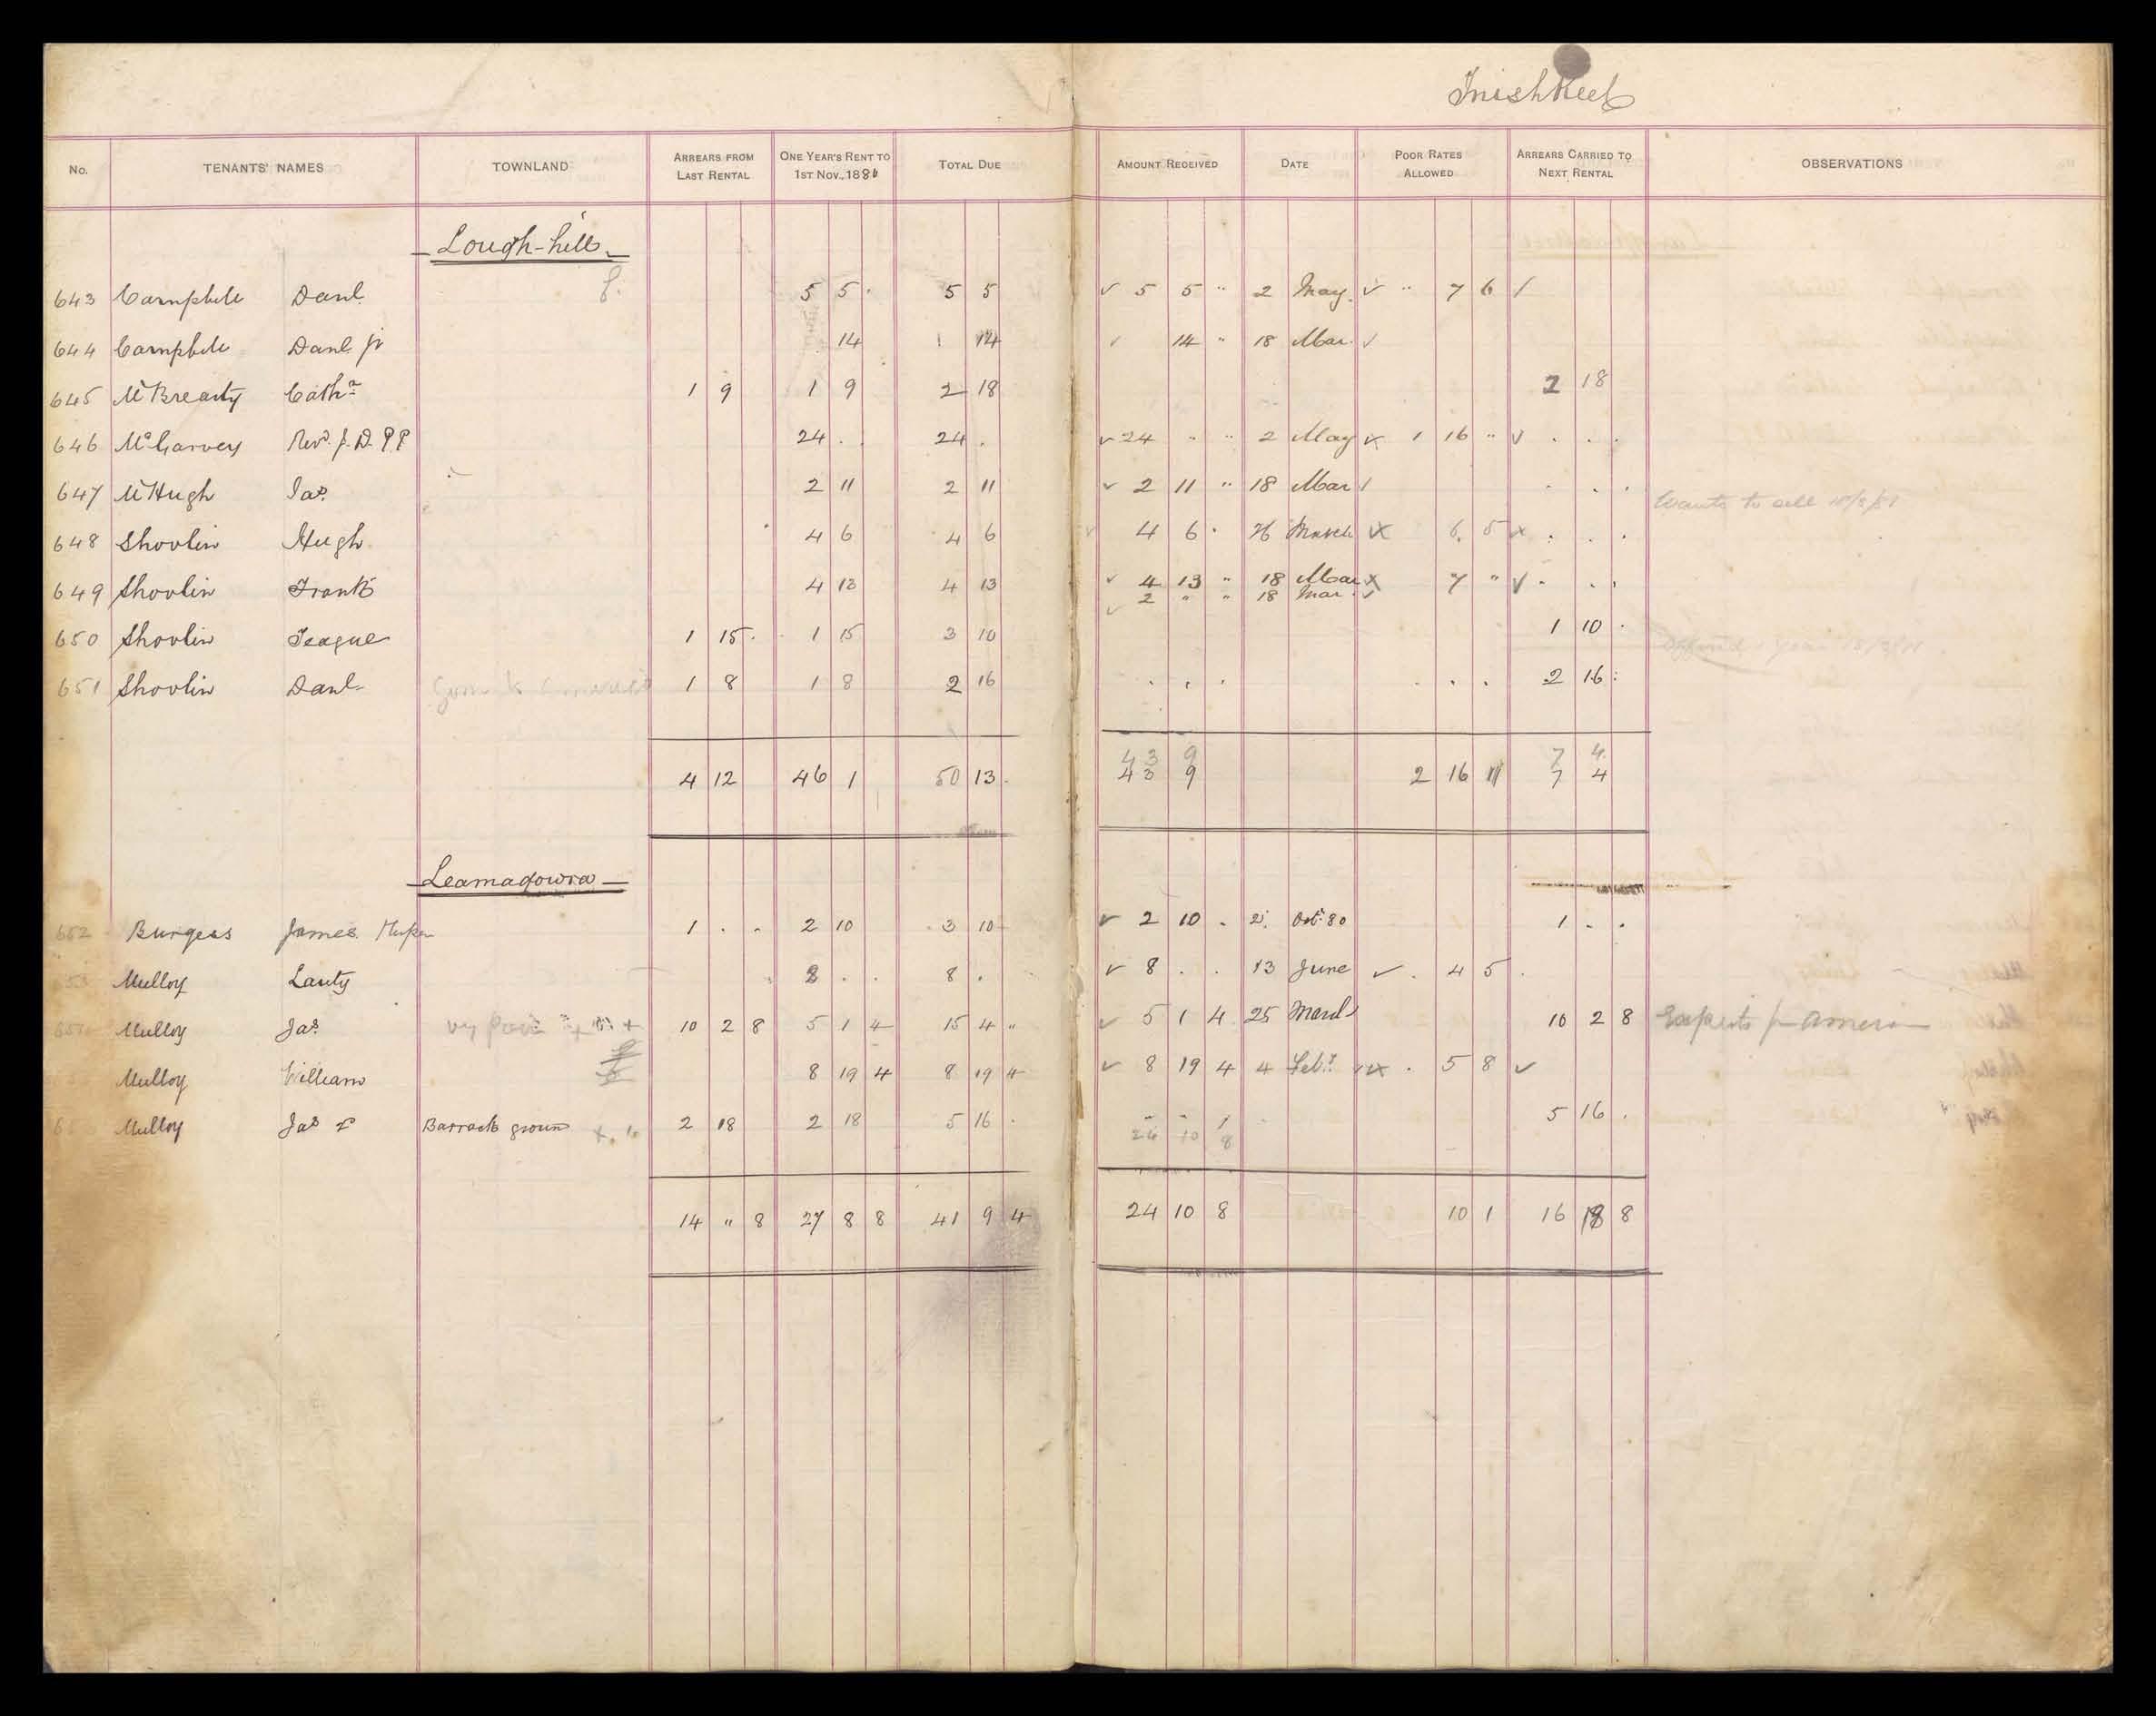 Inishkeel
No. TENANTS' NAMES TOWNLAND ARREARS FROM LAST RENTAL ONE YEAR'S RENT TO 1ST NOV., 1880 TOTAL DUE AMOUNT RECEIVED DATE POOR RATES ALLOWED ARREARS CARRIED TO NEXT RENTAL OBSERVATIONS
Lough-hill
643 Campbell Danl. 5 5 . 5 5 ✓ 5 5 " 2 May ✓ " 7 6 /
644 Campbell Danl. jr 14 14 ✓ 14 " 18 Mar. ✓
645 McBrearty Catha. 1 9 1 9 2 18 2 18
646 McGarvey Revd. J. D. P P 24 . . 24 . ✓ 24 " " 2 May ✓ 1 16 " ✓ . . .
647 McHugh Jas. 2 11 2 11 ✓ 2 11 " 18 Mar / . . . Wants to sell 18/3/81
648 Shovlin Hugh 4 6 4 6 4 6 . 26 March x 6 5 x . . .
649 Shovlin Frank 4 13 4 13 ✓ 4 13 " 18 Mar x 7 " ✓ . . .
✓ 2 " " 18 Mar. ✓
650 Shovlin Teague 1 15 . 1 15 3 10 1 10 .
651 Shovlin Danl. 1 8 1 8 2 16 . . . . . . 2 16 .
43 9 7 4
4 12 46 1 50 13 . 43 9 2 16 11 7 4
Leamagowra
652 Burgess James 1 . . 2 10 3 10 ✓ 2 10 . 2 Oct. 80 1 . .
Mulloy Lanty 8 . . 8 . ✓ 8 . . 13 June ✓ . 4 5 .
Mulloy Jas. 10 2 8 5 1 4 15 4 " ✓ 5 1 4 25 March 10 2 8 Expects fm America
Mulloy William 8 19 4 8 19 4 ✓ 8 19 4 4 Feby. x . 5 8 ✓
Mulloy Jas. Barrack ground 2 18 2 18 5 16 . 5 16 .
24 10 8
14 " 8 27 8 8 41 9 4 24 10 8 10 1 16 18 8